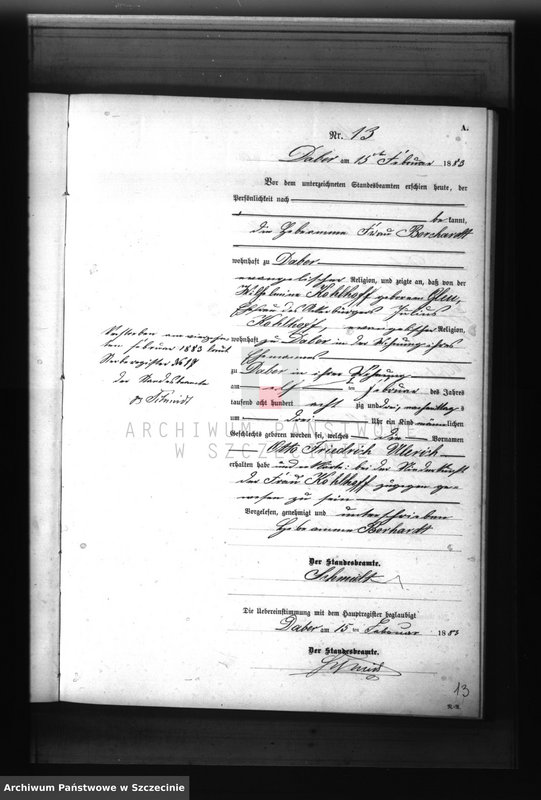 A.
Nr. 13
Daber am 15ten Februar 1883
Vor dem unterzeichneten Standesbeamten erschien heute, der
Persönlichkeit nach
bekannt,
die Hebamme Frau Borchardt
wohnhaft zu Daber
evangelischer Religion, und zeigte an, daß von der
Wilhelmine Kohlhoff geborenen
Ehefrau des Ackerbürgers Julius
Kohlhoff, evangelischer Religion,
wohnhaft zu Daber in der Wohnung ihres
Ehemannes
zu Daber in ihrer Wohnung
am ten Februar des Jahres
tausend acht hundert acht zig und drei, nachmittags
um drei Uhr ein Kind männlichen
Geschlechts geboren worden sei, welches die Vornamen
Otto Friedrich Ulerich
erhalten habe und erklärte: bei der Niederkunft
der Frau Kohlhoff zugegen ge-
wesen zu sein
Vorgelesen, genehmigt und unterschrieben
Hebamme Borchardt
Der Standesbeamte.
Schmidt
Die Uebereinstimmung mit dem Hauptregister beglaubigt
Daber am 15 ten Februar 1883
Der Standesbeamte.
Schmidt
13
Verstorben am
ten Februar 1883 laut
Sterberegister No 17
Der Standesbeamte
Schmidt
ARCHIWUM PAŃSTWOWE
W SZCZECINIE
Archiwum Państwowe w Szczecinie